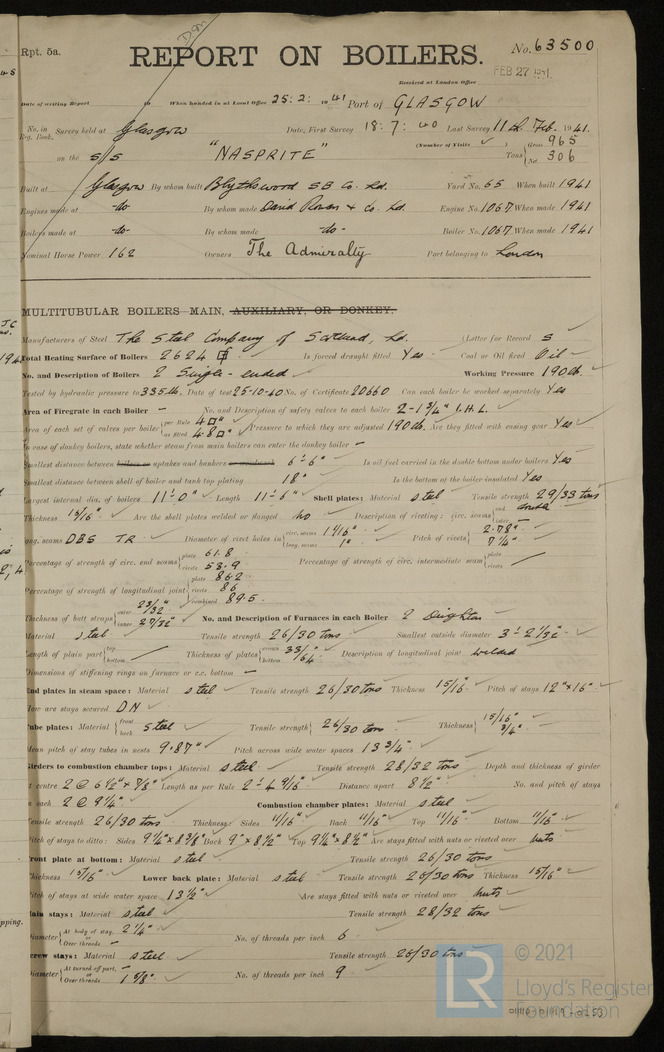 Rpt. 5a.
REPORT ON BOILERS.
No. 63500
FEB 27 1941
Received at London Office
Date of writing Report 19 When handed in at Local Office 25:2: 1941 Port of GLASGOW
No. in Reg. Book. Survey held at Glasgow Date, First Survey 18:7:40 Last Survey 11th Feb. 1941.
(Number of Visits ) Gross 965
on the S/S "NASPRITE" Tons Net 306
Built at Glasgow By whom built Blythswood SB Co. Ld. Yard No. 65 When built 1941
Engines made at -do- By whom made David Rowan & Co. Ld. Engine No. 1067 When made 1941
Boilers made at -do- By whom made -do- Boiler No. 1067 When made 1941
Nominal Horse Power 162 Owners The Admiralty Port belonging to London
MULTITUBULAR BOILERS MAIN, AUXILIARY, OR DONKEY.
Manufacturers of Steel The Steel Company of Scotland, Ld. (Letter for Record S
Total Heating Surface of Boilers 2624 Is forced draught fitted Yes Coal or Oil fired Oil
No. and Description of Boilers 2 Single-ended Working Pressure 190 lb.
Tested by hydraulic pressure to 335 lb. Date of test 25-10-40 No. of Certificate 20660 Can each boiler be worked separately Yes
Area of Firegrate in each Boiler – No. and Description of safety valves to each boiler 2-1¾" I.H.L.
Area of each set of valves per boiler per Rule 4 □" as fitted 4.8 □" Pressure to which they are adjusted 190 lb. Are they fitted with easing gear Yes
In case of donkey boilers, state whether steam from main boilers can enter the donkey boiler –
Smallest distance between boilers or uptakes and bunkers or woodwork 6'-6" Is oil fuel carried in the double bottom under boilers Yes
Smallest distance between shell of boiler and tank top plating 18" Is the bottom of the boiler insulated Yes
Largest internal dia. of boilers 11'-0" Length 11'-6" Shell plates: Material steel Tensile strength 29/33 tons
Thickness 15/16" Are the shell plates welded or flanged No Description of riveting: circ. seams end double inter.
long. seams DBS TR Diameter of rivet holes in circ. seams 1 1/16" long. seams 1" Pitch of rivets 2.78" 7¼"
Percentage of strength of circ. end seams plate 61.8 rivets 53.9 Percentage of strength of circ. intermediate seam plate rivets
Percentage of strength of longitudinal joint plate 86.2 rivets 86 combined 89.5
Thickness of butt straps outer 23/32" inner 27/32" No. and Description of Furnaces in each Boiler 2 Deighton
Material steel Tensile strength 26/30 tons Smallest outside diameter 3'-2 1/32"
Length of plain part top bottom Thickness of plates crown bottom 33/64" Description of longitudinal joint welded
Dimensions of stiffening rings on furnace or c.c. bottom –
End plates in steam space: Material steel Tensile strength 26/30 tons Thickness 15/16" Pitch of stays 12"x16"
How are stays secured DN
Tube plates: Material front back steel Tensile strength 26/30 tons Thickness 15/16" ¾"
Mean pitch of stay tubes in nests 9.87" Pitch across wide water spaces 13¾"
Girders to combustion chamber tops: Material steel Tensile strength 28/32 tons Depth and thickness of girder
at centre 2 @ 6½" x ⅞" Length as per Rule 2'-4 9/16" Distance apart 8½" No. and pitch of stays
in each 2 @ 9¼" Combustion chamber plates: Material steel
Tensile strength 26/30 tons Thickness: Sides 11/16" Back 11/16" Top 11/16" Bottom 11/16"
Pitch of stays to ditto: Sides 9¼"x8⅜" Back 9"x8½" Top 9¼"x8½" Are stays fitted with nuts or riveted over nuts
Front plate at bottom: Material steel Tensile strength 26/30 tons
Thickness 15/16" Lower back plate: Material steel Tensile strength 26/30 tons Thickness 15/16"
Pitch of stays at wide water space 13½" Are stays fitted with nuts or riveted over Nuts
Main stays: Material steel Tensile strength 28/32 tons
Diameter At body of stay, or Over threads 2¼" No. of threads per inch 6
Screw stays: Material steel Tensile strength 26/30 tons
Diameter At turned off part, or Over threads 1⅝" No. of threads per inch 9
LR
© 2021
Lloyd's Register
Foundation